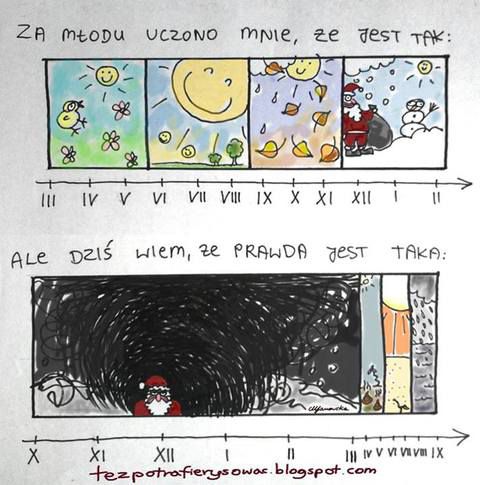 ZA MŁODU UCZONO MNIE, ŻE JEST TAK:
III IV V VI VII VIII IX X XI XII I II
ALE DZIŚ WIEM, ŻE PRAWDA JEST TAKA:
X XI XII I II III IV V VI VII VIII IX
tezpotrafierysowac.blogspot.com